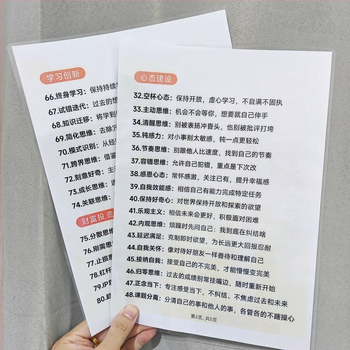 学习创新
66.终身学习：保持持续
67.试错迭代：过去的想
68.知识迁移：将其他
69.简化思维：去除冗
70.模式识别：从经
71.跨界思维：借鉴
72.刻意好奇：主
73.成长思维：
74.关联思维：
财富投资
75.分散思维
76.
77.止损
78.杠杆
79.IP
80.
心态建设
32.空杯心态：保持开放，虚心学习，不自满不固执
33.主动思维：机会不会等你，想要就自己伸手
34.清醒思维：别被表扬冲昏头，也别被批评打垮
35.钝感力：对小事别太敏感，钝一点更轻松
36.节奏思维：别跟他人比速度，找到自己的节奏
37.容错思维：允许自己犯错，重点是下次改
38.感恩心态：常怀感激，关注已有，提升幸福感
39.自我效能感：相信自己有能力完成特定任务
40.保持好奇心：对世界保持开放和探索的欲望
41.乐观主义：相信未来会更好，积极面对困难
42.内观思维：烦躁时先问自己：我到底在纠结啥
43.延迟满足：克制即时欲望，为长远更大回报忍耐
44.自我关怀：像对待好朋友一样善待和理解自己
45.接纳自我：接受自己的不完美，才能慢慢变完美
46.归零思维：过去的成绩别常挂嘴边，随时重新开始
47.正念当下：专注感受当下，不纠结、不焦虑过去和未来
48.课题分离：分清自己的事和他人的事，各管各的不瞎操心
第3页，共5页